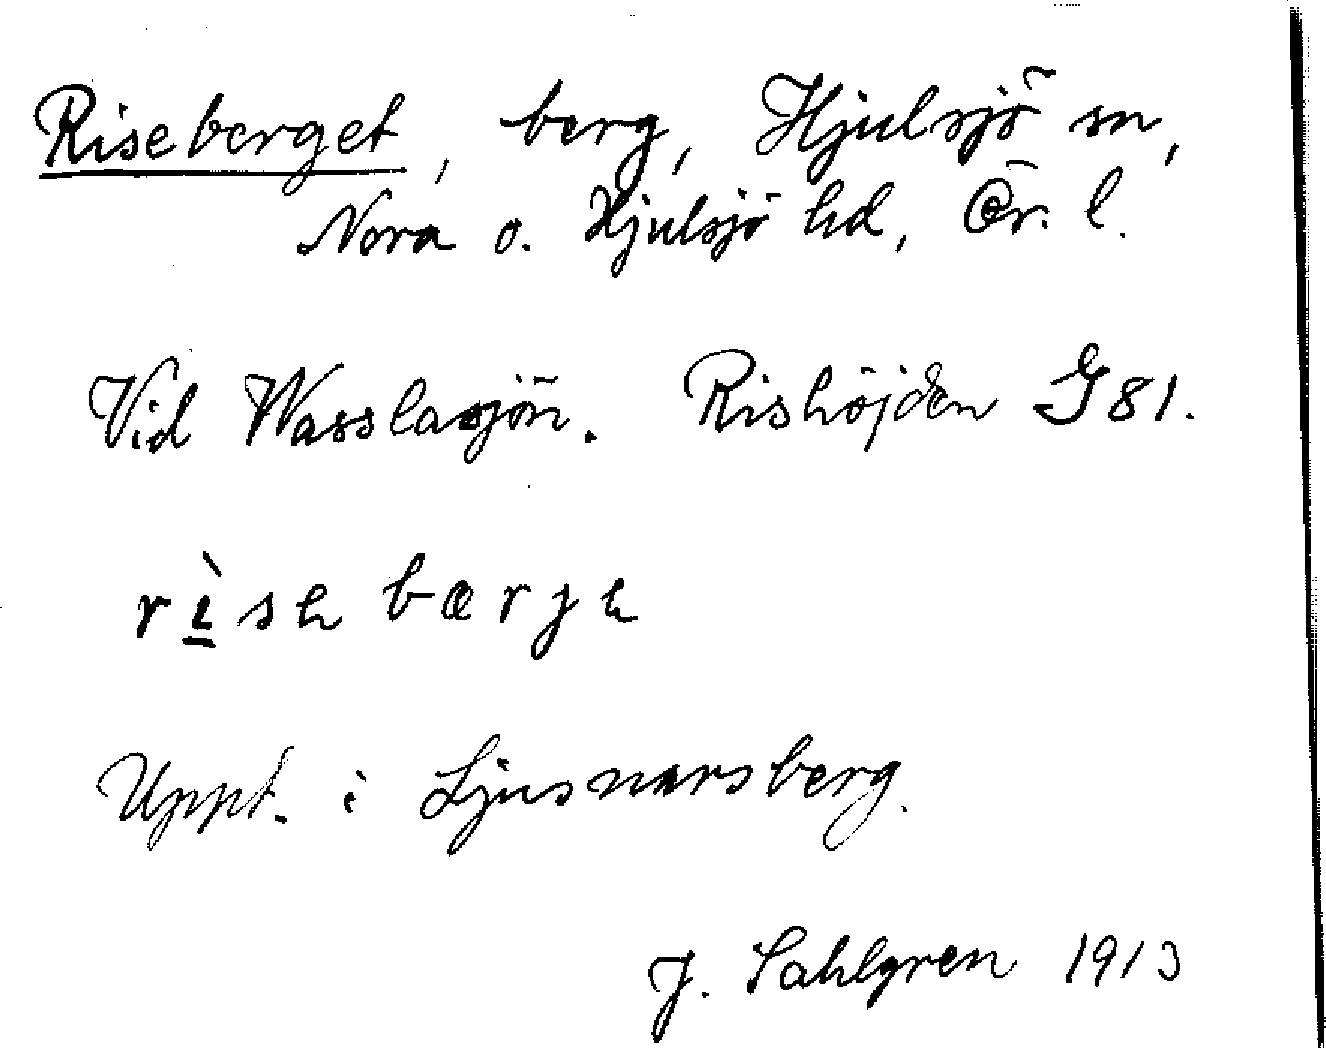 Riseberget, berg, Hjulsjö sn,
Nora o. Hjulsjö hd, Ör. l.
Vid Wasslasjön. Rishöjden G 81.
rìse bærje
Uppt. i Ljusnarsberg.
J. Sahlgren 1913